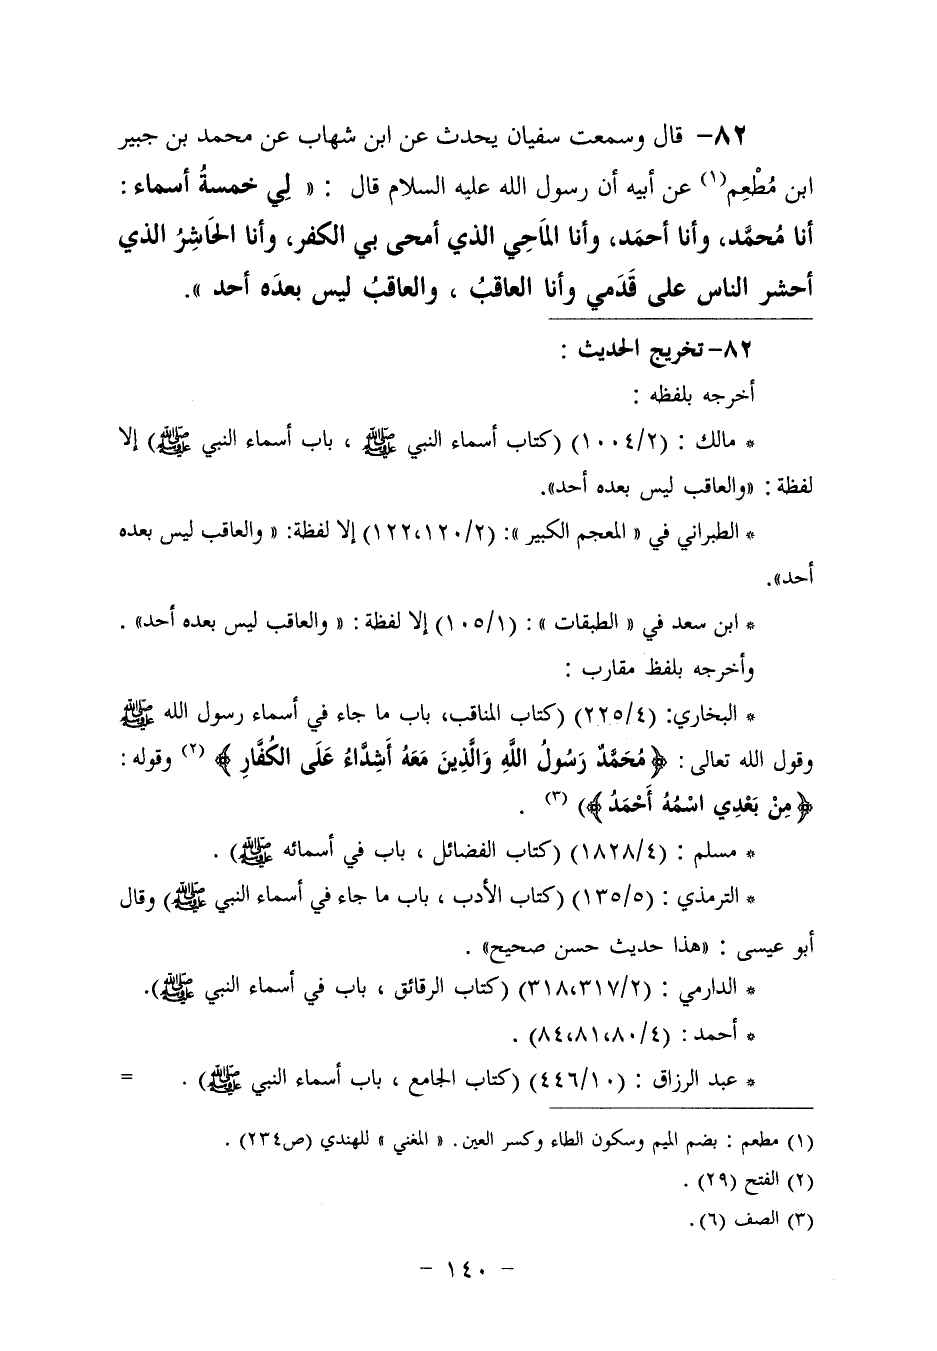 ٨٢- قال وسمعت سفيان يحدث عن ابن شهاب عن محمد بن جبير
ابن مُطْعِم(١) عن أبيه أن رسول الله عليه السلام قال : « لِي خمسةُ أسماء :
أنا مُحمَّد، وأنا أحمَد، وأنا المَاحِي الذي أمحى بي الكفر، وأنا الحَاشِرُ الذي
أحشر الناس على قَدَمي وأنا العاقبُ ، والعاقبُ ليس بعدَه أحد ».
٨٢- تخريج الحديث :
أخرجه بلفظه :
* مالك : (١٠٠٤/٢) (كتاب أسماء النبي ﷺ ، باب أسماء النبي ﷺ) إلا
لفظة : «والعاقب ليس بعده أحد».
* الطبراني في « المعجم الكبير »: (١٢٢،١٢٠/٢) إلا لفظة: « والعاقب ليس بعده
أحد».
* ابن سعد في « الطبقات » : (١٠٥/١) إلا لفظة : « والعاقب ليس بعده أحد» .
وأخرجه بلفظ مقارب :
* البخاري: (٢٢٥/٤) (كتاب المناقب، باب ما جاء في أسماء رسول الله ﷺ
وقول الله تعالى : ﴿ مُحَمَّدٌ رَسُولُ اللَّهِ وَالَّذِينَ مَعَهُ أَشِدَّاءُ عَلَى الكُفَّارِ ﴾ (٢) وقوله :
﴿ مِنْ بَعْدِي اسْمُهُ أَحْمَدُ ﴾) (٣) .
* مسلم : (١٨٢٨/٤) (كتاب الفضائل ، باب في أسمائه ﷺ) .
* الترمذي : (١٣٥/٥) (كتاب الأدب ، باب ما جاء في أسماء النبي ﷺ) وقال
أبو عيسى : «هذا حديث حسن صحيح» .
* الدارمي : (٣١٨،٣١٧/٢) (كتاب الرقائق ، باب في أسماء النبي ﷺ).
* أحمد : (٨٤،٨١،٨٠/٤) .
* عبد الرزاق : (٤٤٦/١٠) (كتاب الجامع ، باب أسماء النبي ﷺ) . =
(١) مطعم : بضم الميم وسكون الطاء وكسر العين. « المغني » للهندي (ص٢٣٤) .
(٢) الفتح (٢٩) .
(٣) الصف (٦) .
- ١٤٠ -